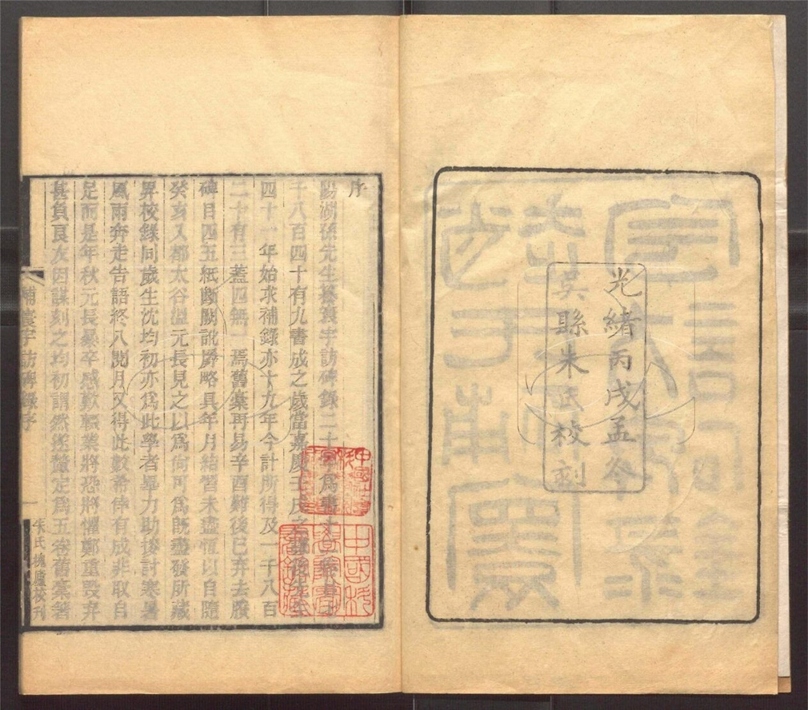 光緒丙戌孟冬
吳縣朱氏校刻
序
陽湖孫先生纂寰宇訪碑錄二十年為書十二卷
千八百四十有九書成之歲當嘉慶壬戌之
四十一年始求補錄亦十九年今計所得及一千八百
二十有三蓋四無一焉舊稾再易辛酉難後已弃去賸
碑目四五紙斷闕訛脫略具年月結習未盡恆以自隨
癸亥入都太谷溫元長見之以為尚可為既盡發所藏
畀校錄同歲生沈均初亦為此學者畢力助搜討寒暑
風雨奔走告語終八閱月又得此數希倖有成非取自
足而是年秋元長暴卒感歎輟業將恐將懼鄭重毀弃
甚負良友因謀刻之均初謂然遂釐定為五卷舊稾著
補寰宇訪碑錄序
一
朱氏槐廬校刊